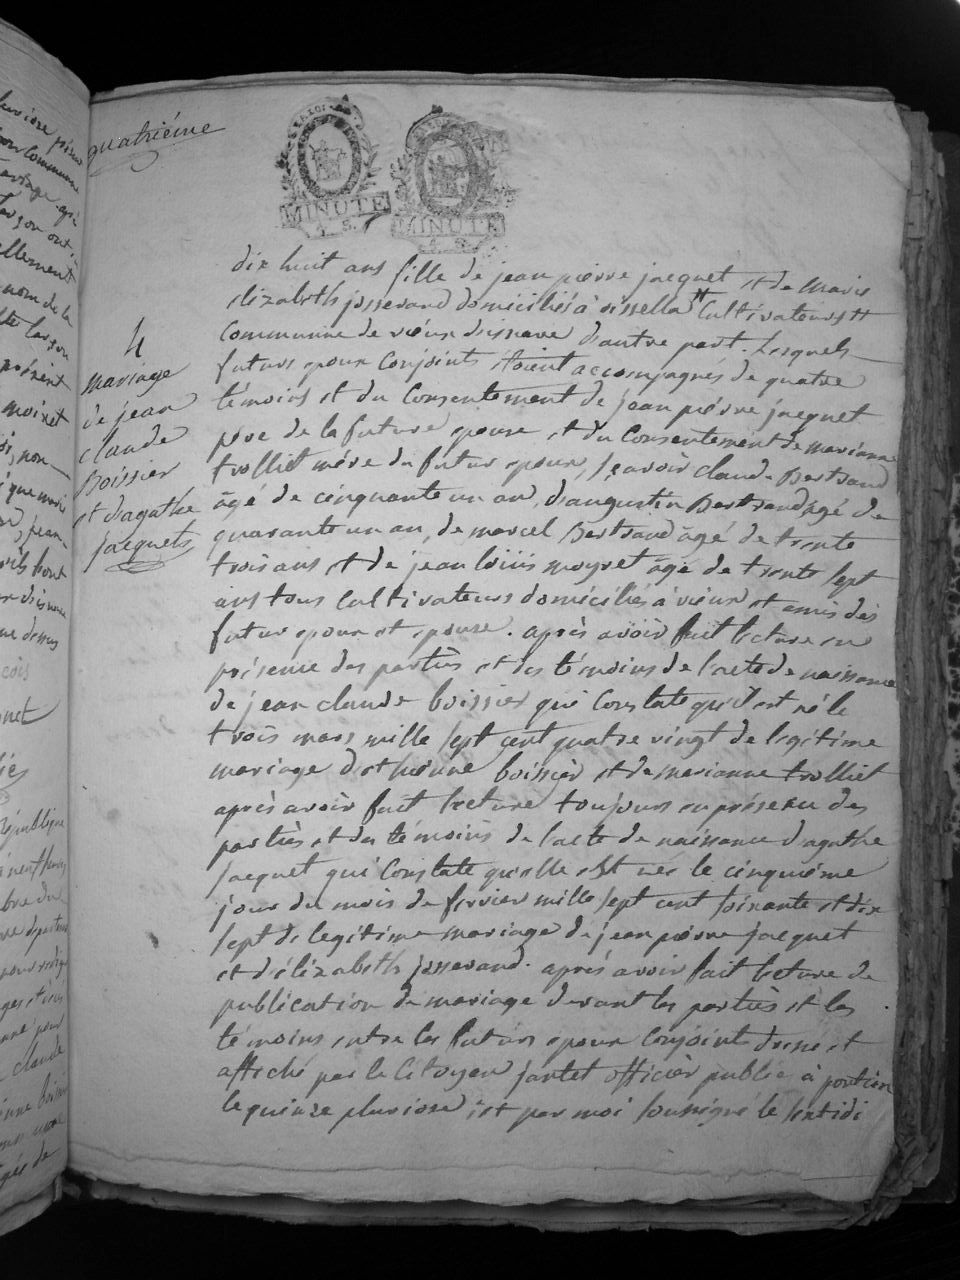 quatriéme
MINUTE
MINUTE
4
mariage
de jean
claude
Boissier
et d'agathe
jacquets
dix huit ans fille de jean pierre jacquet et de Marie
elizabeth josserand domiciliés à Cultivateurs
Commune de vieux d'autre part. Lesquels
futurs epoux Conjoints étoient accompagnés de quatre
témoins et du Consentement de jean piérre jacquet
pére de la future epouse et du Consentement de marianne
trolliet mére du futur epoux, sçavoir claude Bertrand
âgé de cinquante un an, d'augustin Bertrand âgé de
quarante un an, de marcel Bertrand âgé de trente
trois ans et de jean loüis moyret agé de trente sept
ans tous Cultivateurs domiciliés à vieux et amis des
futur epoux et epouse. après avoir fait lecture en
présence des partiès et des témoins de l'acte de naissance
de jean claude boissier qui Constate qu'il est né le
trois mars mille sept cent quatre vingt de legitime
mariage d'ethienne boissier et de marianne trolliet
après avoir fait lecture toujours en présence des
partiès et des témoins de l'acte de naissance d'agathe
jacquet qui Constate qu'elle est née le cinquiéme
jour du mois de fevrier mille sept cent soixante et dix
sept de legitime mariage de jean piérre jacquet
et d'élizabeth josserand. après avoir fait lecture de
publication de mariage devant les partiès et les
témoins entre les futurs epoux Conjoint et
affiché par le Citoyen jantet officier public à
le quinze pluviose et par moi soussigné le